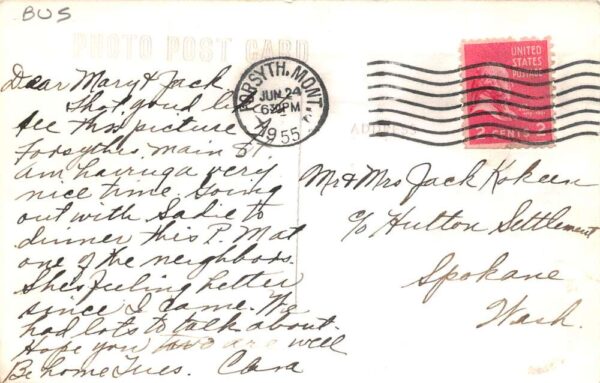 BUS
PHOTO POST CARD
Dear Mary & Jack,
Thot you'd like
see this picture
Forsythes main St.
am having a very
nice time. Going
out with Sadie to
dinner this P.M at
one of the neighbors.
She's feeling better
since I came. We
had lots to talk about.
Hope you two are well
Be home Tues. Clara
FORSYTH, MONT.
JUN 24
6 PM
1955
ADDRESS
UNITED
STATES
POSTAGE
2 CENTS 2
Mr & Mrs Jack Kokeen
c/o Hutton Settlement
Spokane
Wash.